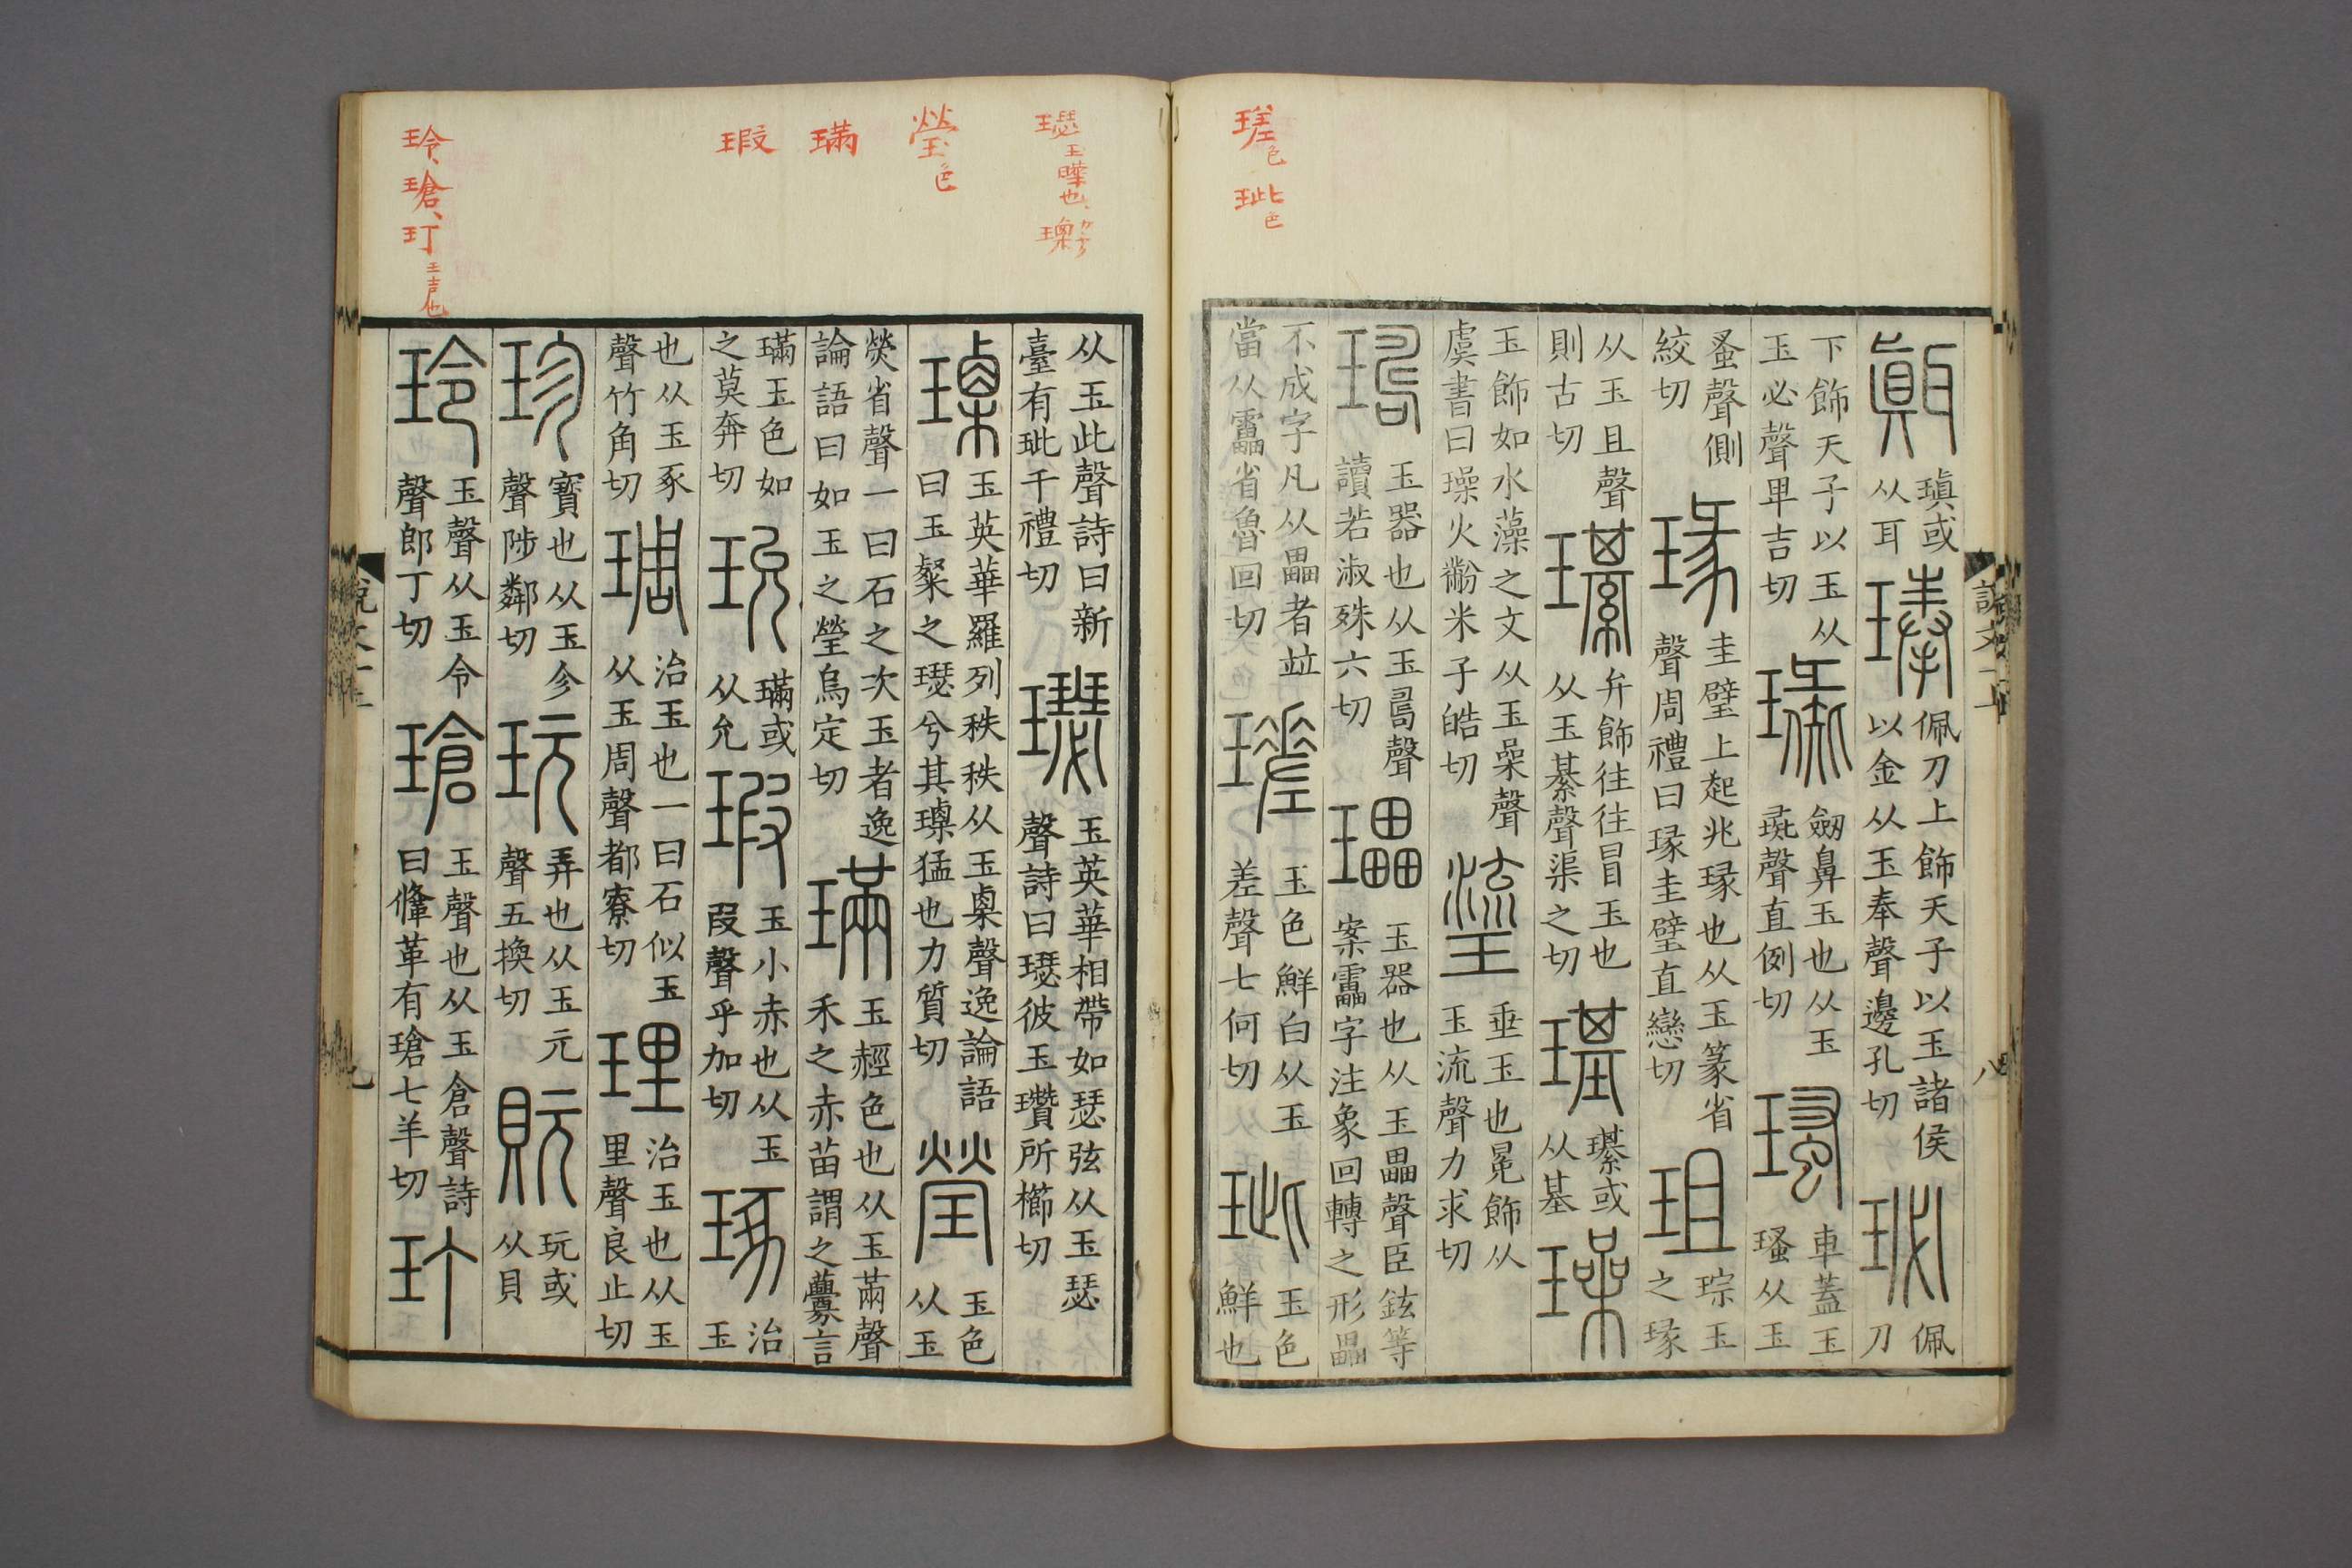 瑳色 玼色
䏁瑱或从耳琫佩刀上飾天子以玉諸侯以金从玉奉聲邊孔切珌佩刀
下飾天子以玉从玉必聲卑吉切璏劒鼻玉也从玉彘聲直例切瑵車蓋玉瑵从玉
蚤聲側絞切瑑圭璧上起兆瑑也从玉篆省聲周禮曰瑑圭璧直戀切珇琮玉之瑑
从玉且聲則古切𤪌弁飾往往冒玉也从玉綦聲渠之切璂𤪌或从基璪
玉飾如水藻之文从玉喿聲虞書曰璪火黺米子皓切瑬垂玉也冕飾从玉流聲力求切
璹玉器也从玉𠷎聲讀若淑殊六切瓃玉器也从玉畾聲臣鉉等案靁字注象回轉之形畾
不成字凡从畾者並當从靁省魯回切瑳玉色鮮白从玉差聲七何切玼玉色鮮也
說文一上
八
璱玉華也、瑮
瑩色
璊
瑕
玲、瑲、玎玉声也
从玉此聲詩曰新臺有玼千禮切璱玉英華相帶如瑟弦从玉瑟聲詩曰璱彼玉瓚所櫛切
瑮玉英華羅列秩秩从玉㮚聲逸論語曰玉粲之璱兮其瑮猛也力質切瑩玉色从玉
熒省聲一曰石之次玉者逸論語曰如玉之瑩烏定切璊玉䞓色也从玉㒼聲禾之赤苗謂之虋言
璊玉色如之莫奔切玧璊或从允瑕玉小赤也从玉叚聲乎加切琢治玉
也从玉豖聲竹角切琱治玉也一曰石似玉从玉周聲都寮切理治玉也从玉里聲良止切
珍寶也从玉㐱聲陟鄰切玩弄也从玉元聲五換切貦玩或从貝
玲玉聲从玉令聲郎丁切瑲玉聲也从玉倉聲詩曰鞗革有瑲七羊切玎
說文一上
九